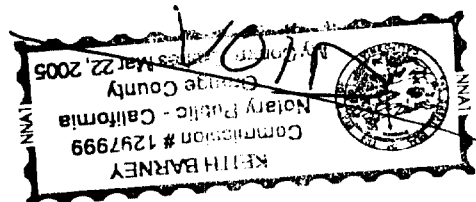 VOID
KEITH BARNEY
Commission # 1297999
Notary Public - California
Orange County
My Comm. Expires Mar 22, 2005
NNA1